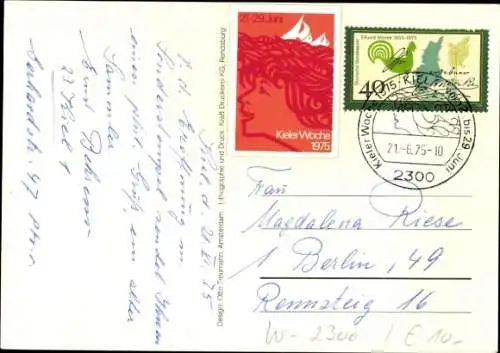 Kiel, d. 21. VI. 75
Z. d. Eröffnung m.
Sonderstempel sendet Ihnen
einen phil. Gruß, ein alter
Sammler
23 Kiel 1
Design: Otto Treumann, Amsterdam Lithographie und Druck: Kraft Druckerei KG, Rendsburg
21.-29. Juni
Kieler Woche
1975
Eduard Mörike 1804-1875
Deutsche Bundespost
40
Kieler Woche
KIEL
bis 29. Juni
21.-6.75-10
2300
Frau
Magdalena Riese
1 Berlin, 49
Rennsteig 16
W-2300 / € 10,-